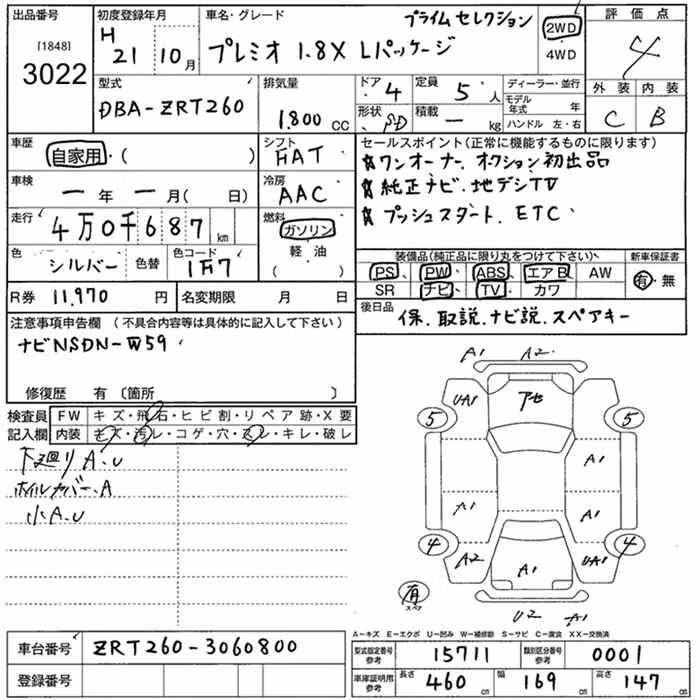 出品番号 初度登録年月 車名・グレード プライム セレクション 2WD 評価点
[1848] H
3022 21 年 10 月 プレミオ 1.8X Lパッケージ 4WD 4
型式 排気量 ドア 4 定員 5 人 ディーラー・並行 外装 内装
DBA-ZRT260 1.800 CC 形状 SD 積載 ー kg モデル年式 年 C B
ハンドル 左・右
車歴 シフト セールスポイント(正常に機能するものに限ります)
自家用・( ) FAT ★ワンオーナー、オクション初出品
車検 冷房 ★純正ナビ、地デジTV
ー 年 ー 月( 日) AAC ★プッシュスタート、ETC
走行 燃料
4万0千687 km ガソリン
軽・油
( )
色 シルバー 色替 色コード 1F7 装備品(純正品に限り丸をつけて下さい) 新車保証書
PS、 PW、 ABS、 エアB AW 有・無
R券 11,970 円 名変期限 月 日 SR ナビ、 TV、 カワ
注意事項申告欄 (不具合内容等は具体的に記入して下さい) 後日品
ナビNSDN-W59 保、取説、ナビ説、スペアキー
修復歴 有 〔箇所 〕
検査員 FW キズ・飛石・ヒビ割・リペア跡・X要
記入欄 内装 キズ・汚レ・コゲ・穴・スレ・キレ・破レ
下廻りA、U
ホイルカバー、A
小A、U
A1 A2
UA1 アセ
5 5
A1
A1 A1
4 A2 A1 UA1 4
有 スペア
U2 A
A-キズ E-エクボ U-凹み W-補修跡 S-サビ C-腐食 XX-交換済
車台番号 ZRT260-3060800 型式指定番号 参考 15711 類別区分番号 参考 0001
登録番号 車庫証明用 参考 長さ 460 cm 幅 169 cm 高さ 147 cm